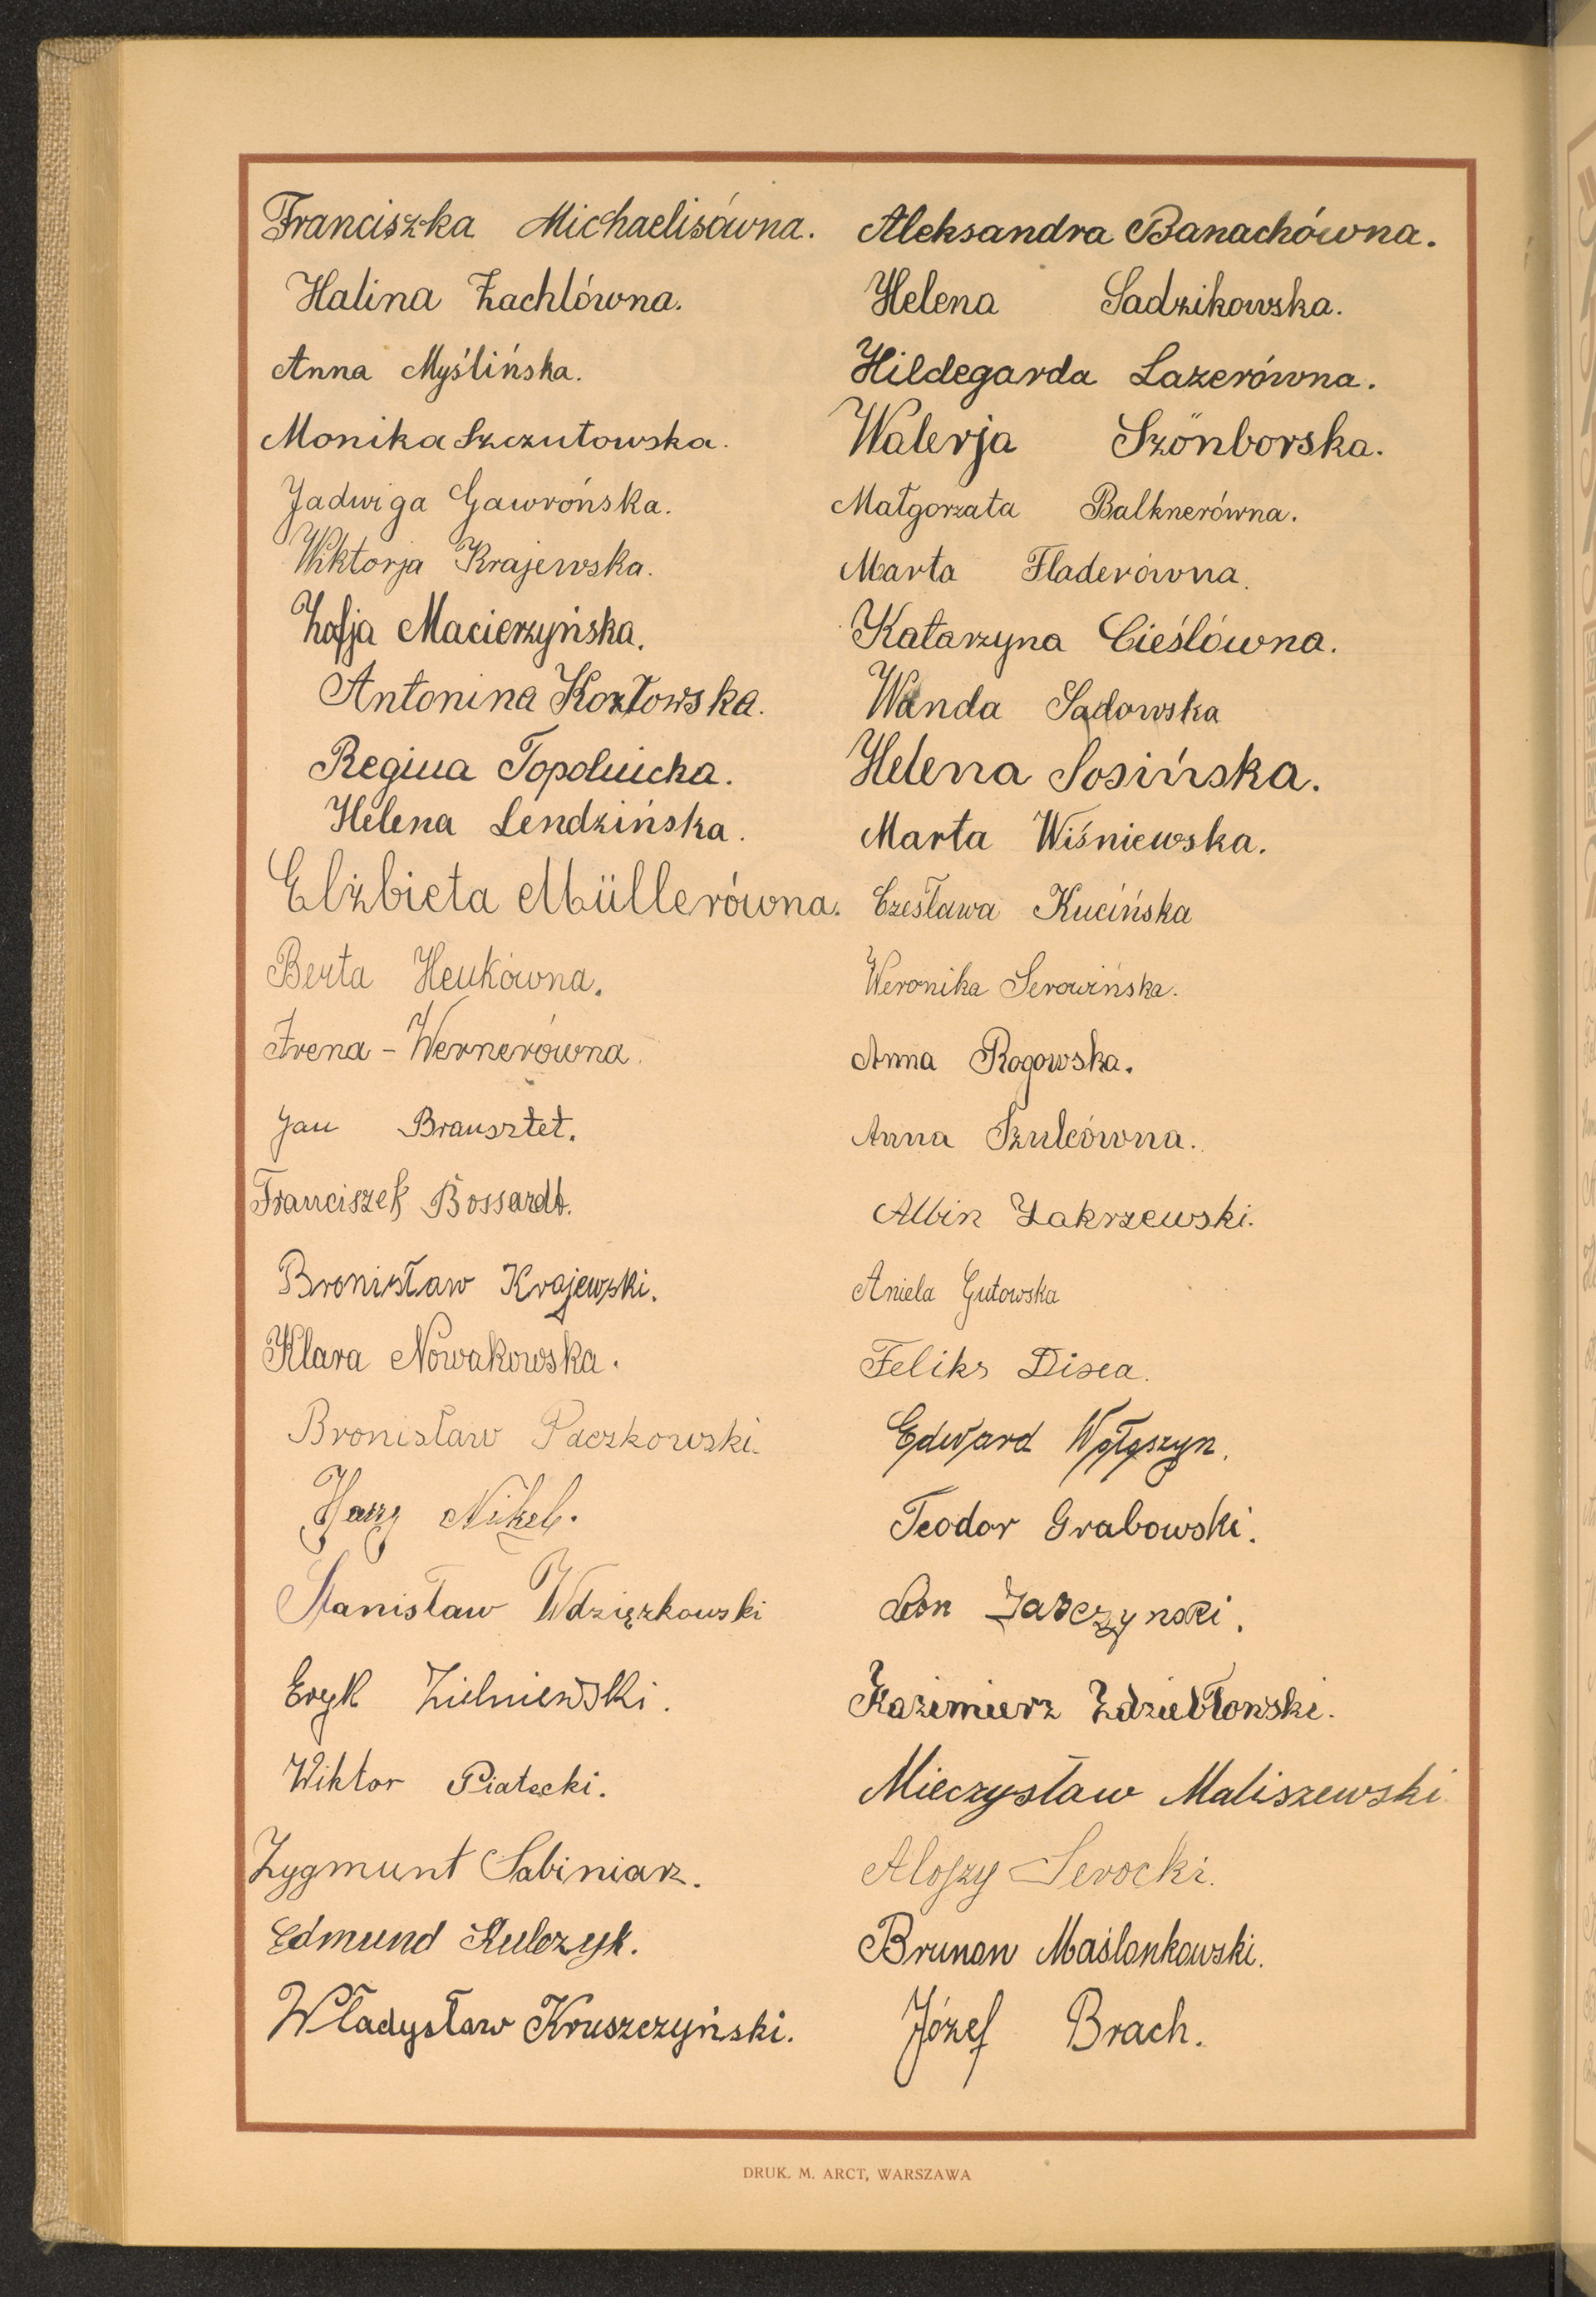 Franciszka Michaelisówna.
Halina Zachlówna.
Anna Myślińska.
Monika Szczutowska.
Jadwiga Gawrońska.
Wiktorja Krajewska.
Zofja Macierzyńska.
Antonina Kozłowska.
Regina Topolnicka.
Helena Lendzińska.
Elżbieta Müllerówna.
Berta Heukówna.
Irena - Wernerówna.
Jan Brausztet.
Franciszek Bossardt.
Bronisław Krajewski.
Klara Nowakowska.
Bronisław Paczkowski.
Nikel.
Stanisław Wdzięzkowski
Eryk Zielniewski.
Wiktor Piatecki.
Zygmunt Sabiniarz.
Edmund Kulczyk.
Władysław Kruszczyński.
Aleksandra Banachówna.
Helena Sadzikowska.
Hildegarda Lazerówna.
Walerja Szönborska.
Małgorzata Balknerówna.
Marta Fladerówna.
Katarzyna Cieślówna.
Wanda Sadowska
Helena Sosińska.
Marta Wiśniewska.
Czesława Kucińska
Weronika Serowińska.
Anna Rogowska.
Anna Szulcówna.
Albin Zakrzewski.
Aniela Gutowska
Feliks Disea.
Edward Wołoszyn.
Teodor Grabowski.
Leon
Kazimierz Zdziebłowski.
Mieczysław Maliszewski.
Alojzy Serocki.
Brunon Maślonkowski.
Józef Brach.
DRUK. M. ARCT, WARSZAWA